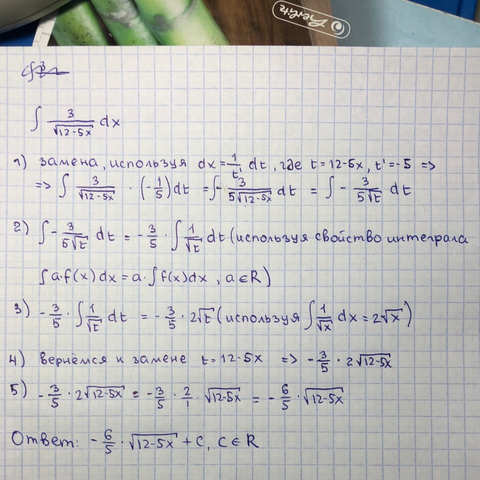 ∫ 3/√(12-5x) dx
1) замена, используя dx = 1/t' dt, где t = 12-5x, t' = -5 =>
=> ∫ 3/√(12-5x) · (-1/5) dt = ∫ - 3/(5√(12-5x)) dt = ∫ - 3/(5√t) dt
2) ∫ - 3/(5√t) dt = - 3/5 · ∫ 1/√t dt (используя свойство интеграла
∫ a·f(x) dx = a·∫ f(x) dx, a ∈ R)
3) - 3/5 · ∫ 1/√t dt = - 3/5 · 2√t (используя ∫ 1/√x dx = 2√x)
4) вернёмся к замене t = 12-5x => - 3/5 · 2√(12-5x)
5) - 3/5 · 2√(12-5x) = - 3/5 · 2/1 · √(12-5x) = - 6/5 · √(12-5x)
Ответ: - 6/5 · √(12-5x) + C, C ∈ R